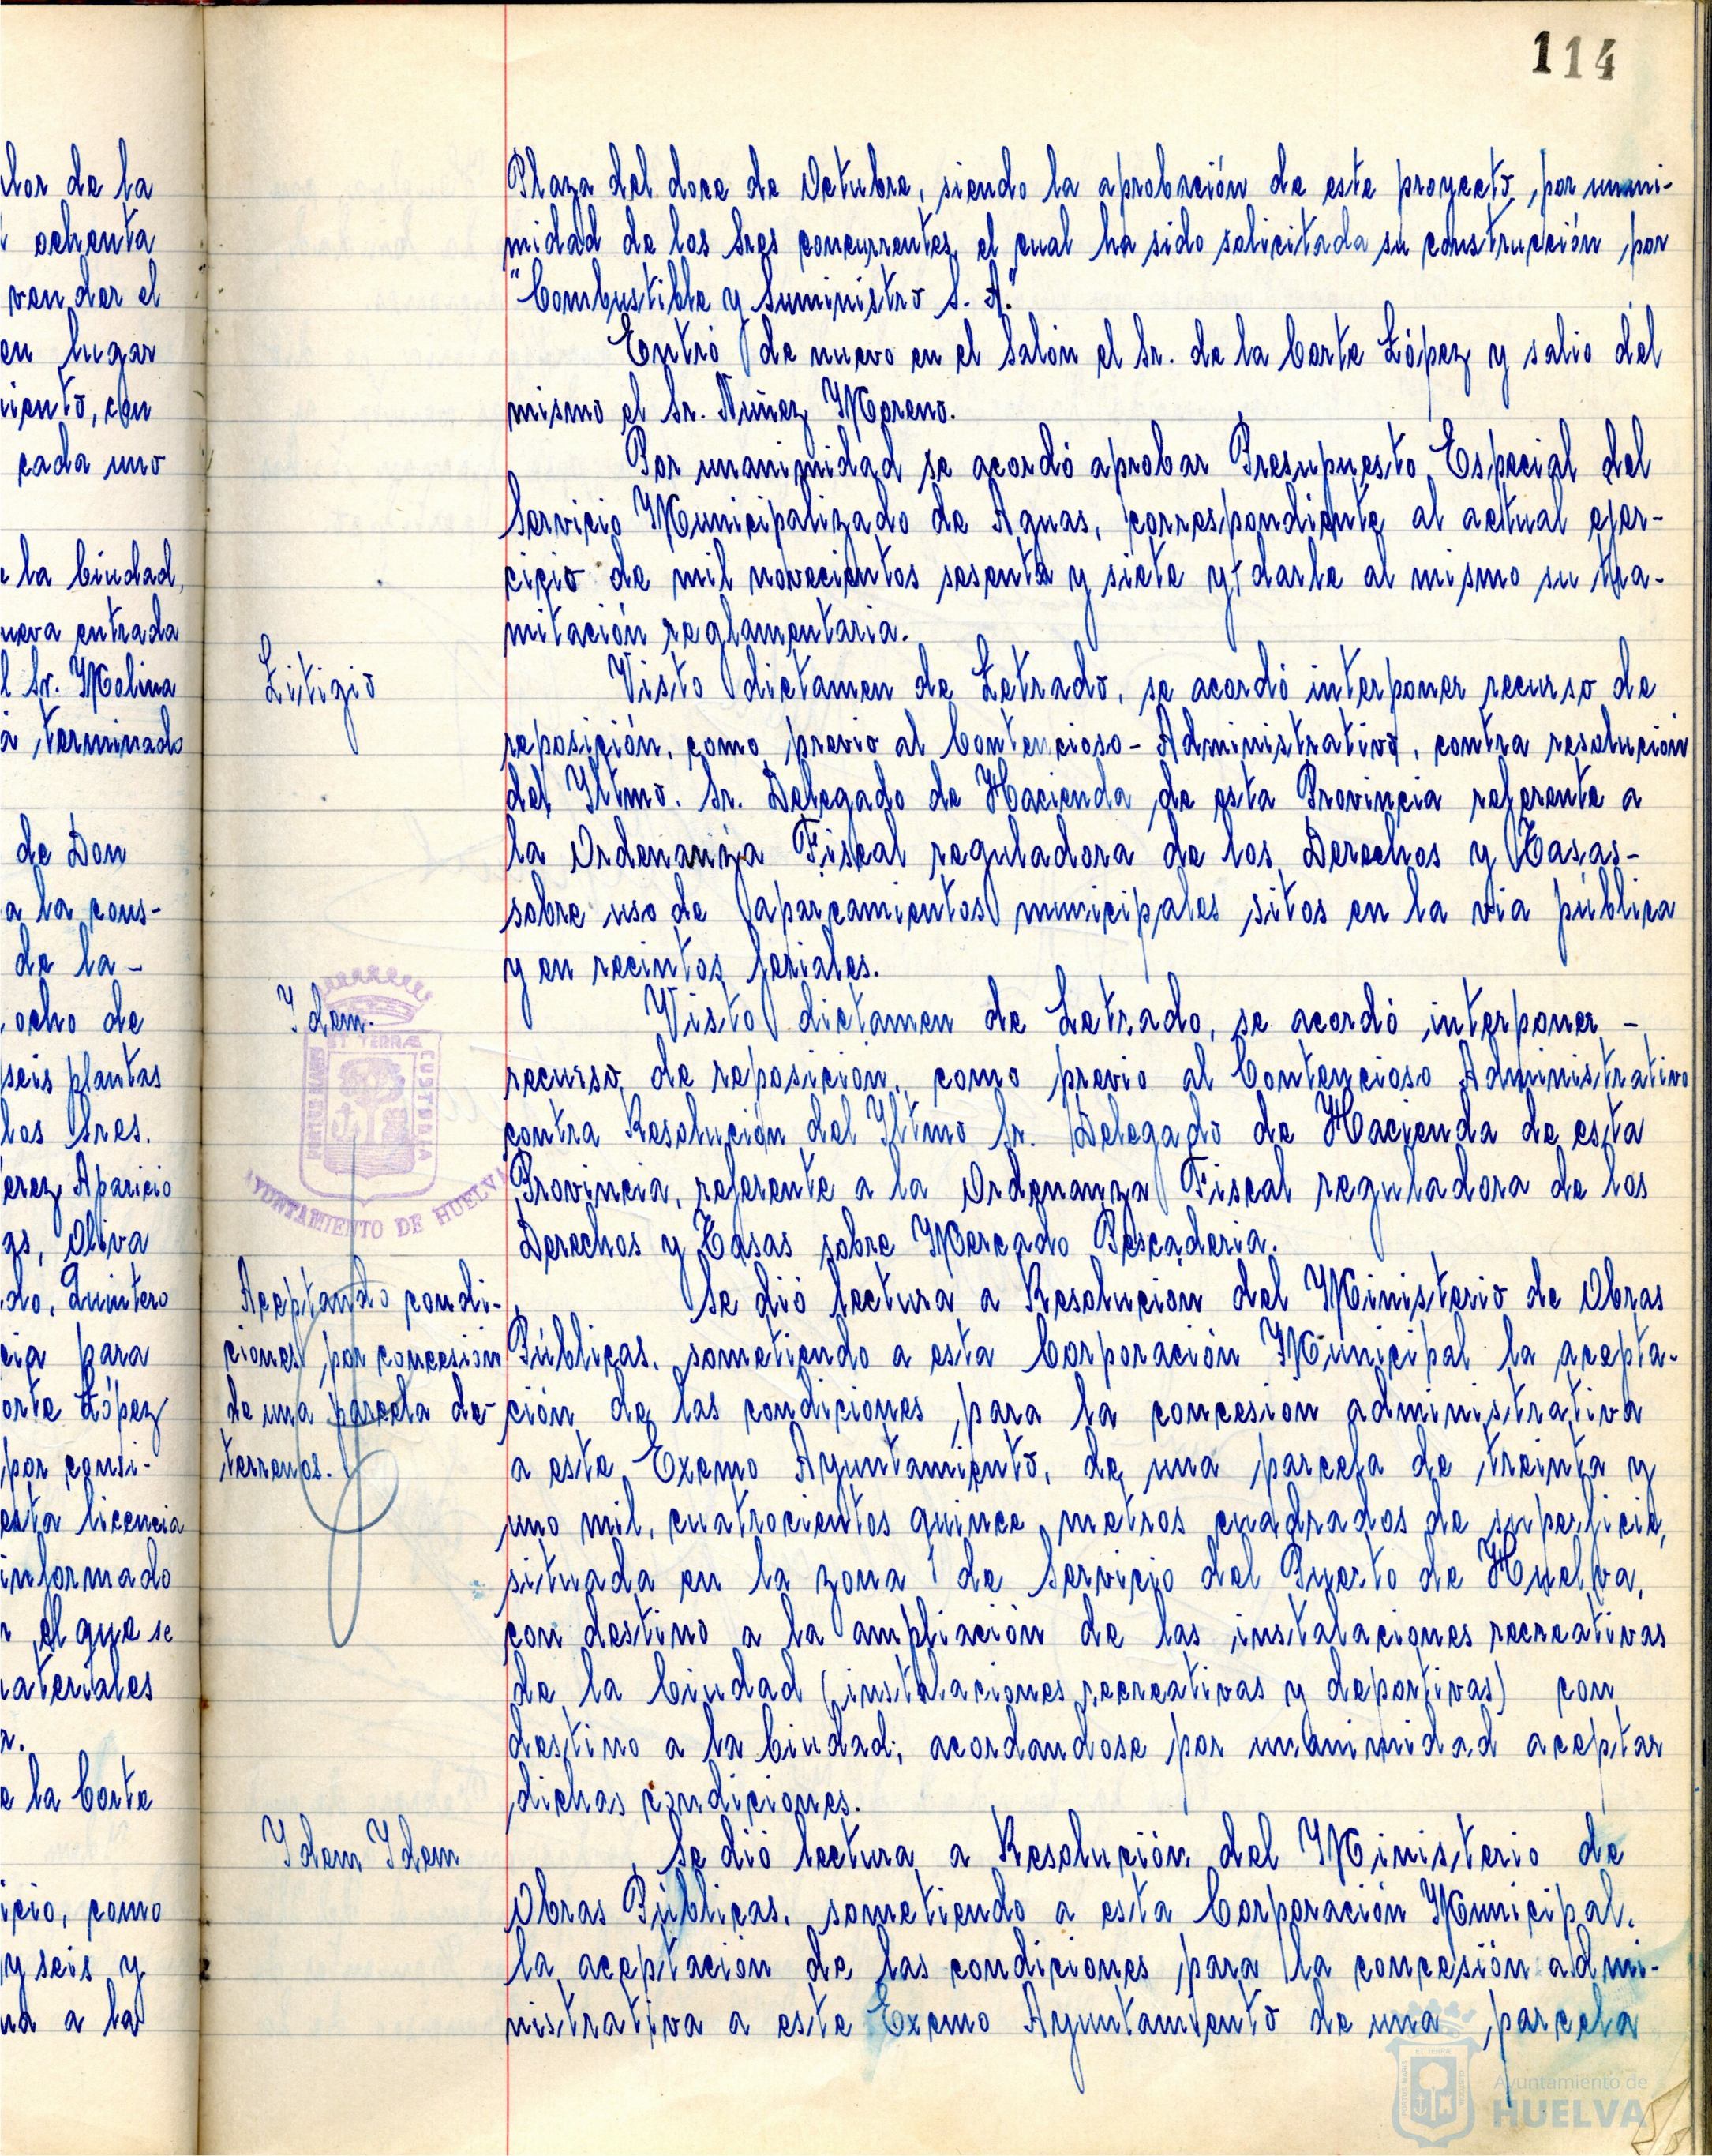 114
lor de la
ochenta
vender el
en lugar
iento, con
cada uno
la Ciudad,
ueva entrada
l Sr. Molina
a terminado
de Don
a la cons-
de la-
ocho de
seis plantas
los Sres.
erez Aparicio
as, Oliva
do, Quintero
cia para
orte López
por consi-
esta licencia
informado
el que se
ateriales
a.
e la Corte
icio, como
y seis y
na a la
Plaza del doce de Octubre, siendo la aprobación de este proyecto, por unani-
midad de los Sres concurrentes, el cual ha sido solicitada su construcción, por
"Combustible y Suministro S. A."
Entró de nuevo en el salón el Sr. de la Corte López y salio del
mismo el Sr. Nuñez Moreno.
Por unanimidad se acordó aprobar Presupuesto Especial del
Servicio Municipalizado de Aguas, correspondiente al actual ejer-
cicio de mil novecientos sesenta y siete y darle al mismo su tra-
mitación reglamentaria.
Litigio
Visto dictamen de Letrado, se acordó interponer recurso de
reposición, como previo al Contencioso-Administrativo, contra resolución
del Yltmo. Sr. Delegado de Hacienda de esta Provincia referente a
la Ordenanza Fiscal reguladora de los Derechos y Tasas-
sobre uso de aparcamientos municipales sitos en la via pública
y en recintos feriales.
Ydem.
Visto dictamen de Letrado, se acordó interponer -
recurso de reposición, como previo al Contencioso Administrativo
contra Resolución del Yltmo Sr. Delegado de Hacienda de esta
Provincia, referente a la Ordenanza Fiscal reguladora de los
Derechos y Tasas sobre Mercado Pescaderia.
ET TERRÆ
PORTUS MARIS
CUSTODIA
AYUNTAMIENTO DE HUELVA
Aceptando condi-
ciones por concesión
de una parcela de-
terrenos.
Se dió lectura a Resolución del Ministerio de Obras
Públicas, sometiendo a esta Corporación Municipal la acepta-
ción de las condiciones para la concesión administrativa
a este Excmo Ayuntamiento, de una parcela de treinta y
uno mil, cuatrocientos quince metros cuadrados de superficie,
situada en la zona de Servicio del Puerto de Huelva,
con destino a la ampliación de las instalaciones recreativas
de la Ciudad (instalaciones recreativas y deportivas) con
destino a la Ciudad; acordandose por unanimidad aceptar
dichas condiciones.
Ydem Ydem
Se dió lectura a Resolución del Ministerio de
Obras Públicas, sometiendo a esta Corporación Municipal,
la aceptación de las condiciones para la concesión admi-
nistrativa a este Excmo Ayuntamiento de una parcela
Ayuntamiento de
HUELVA